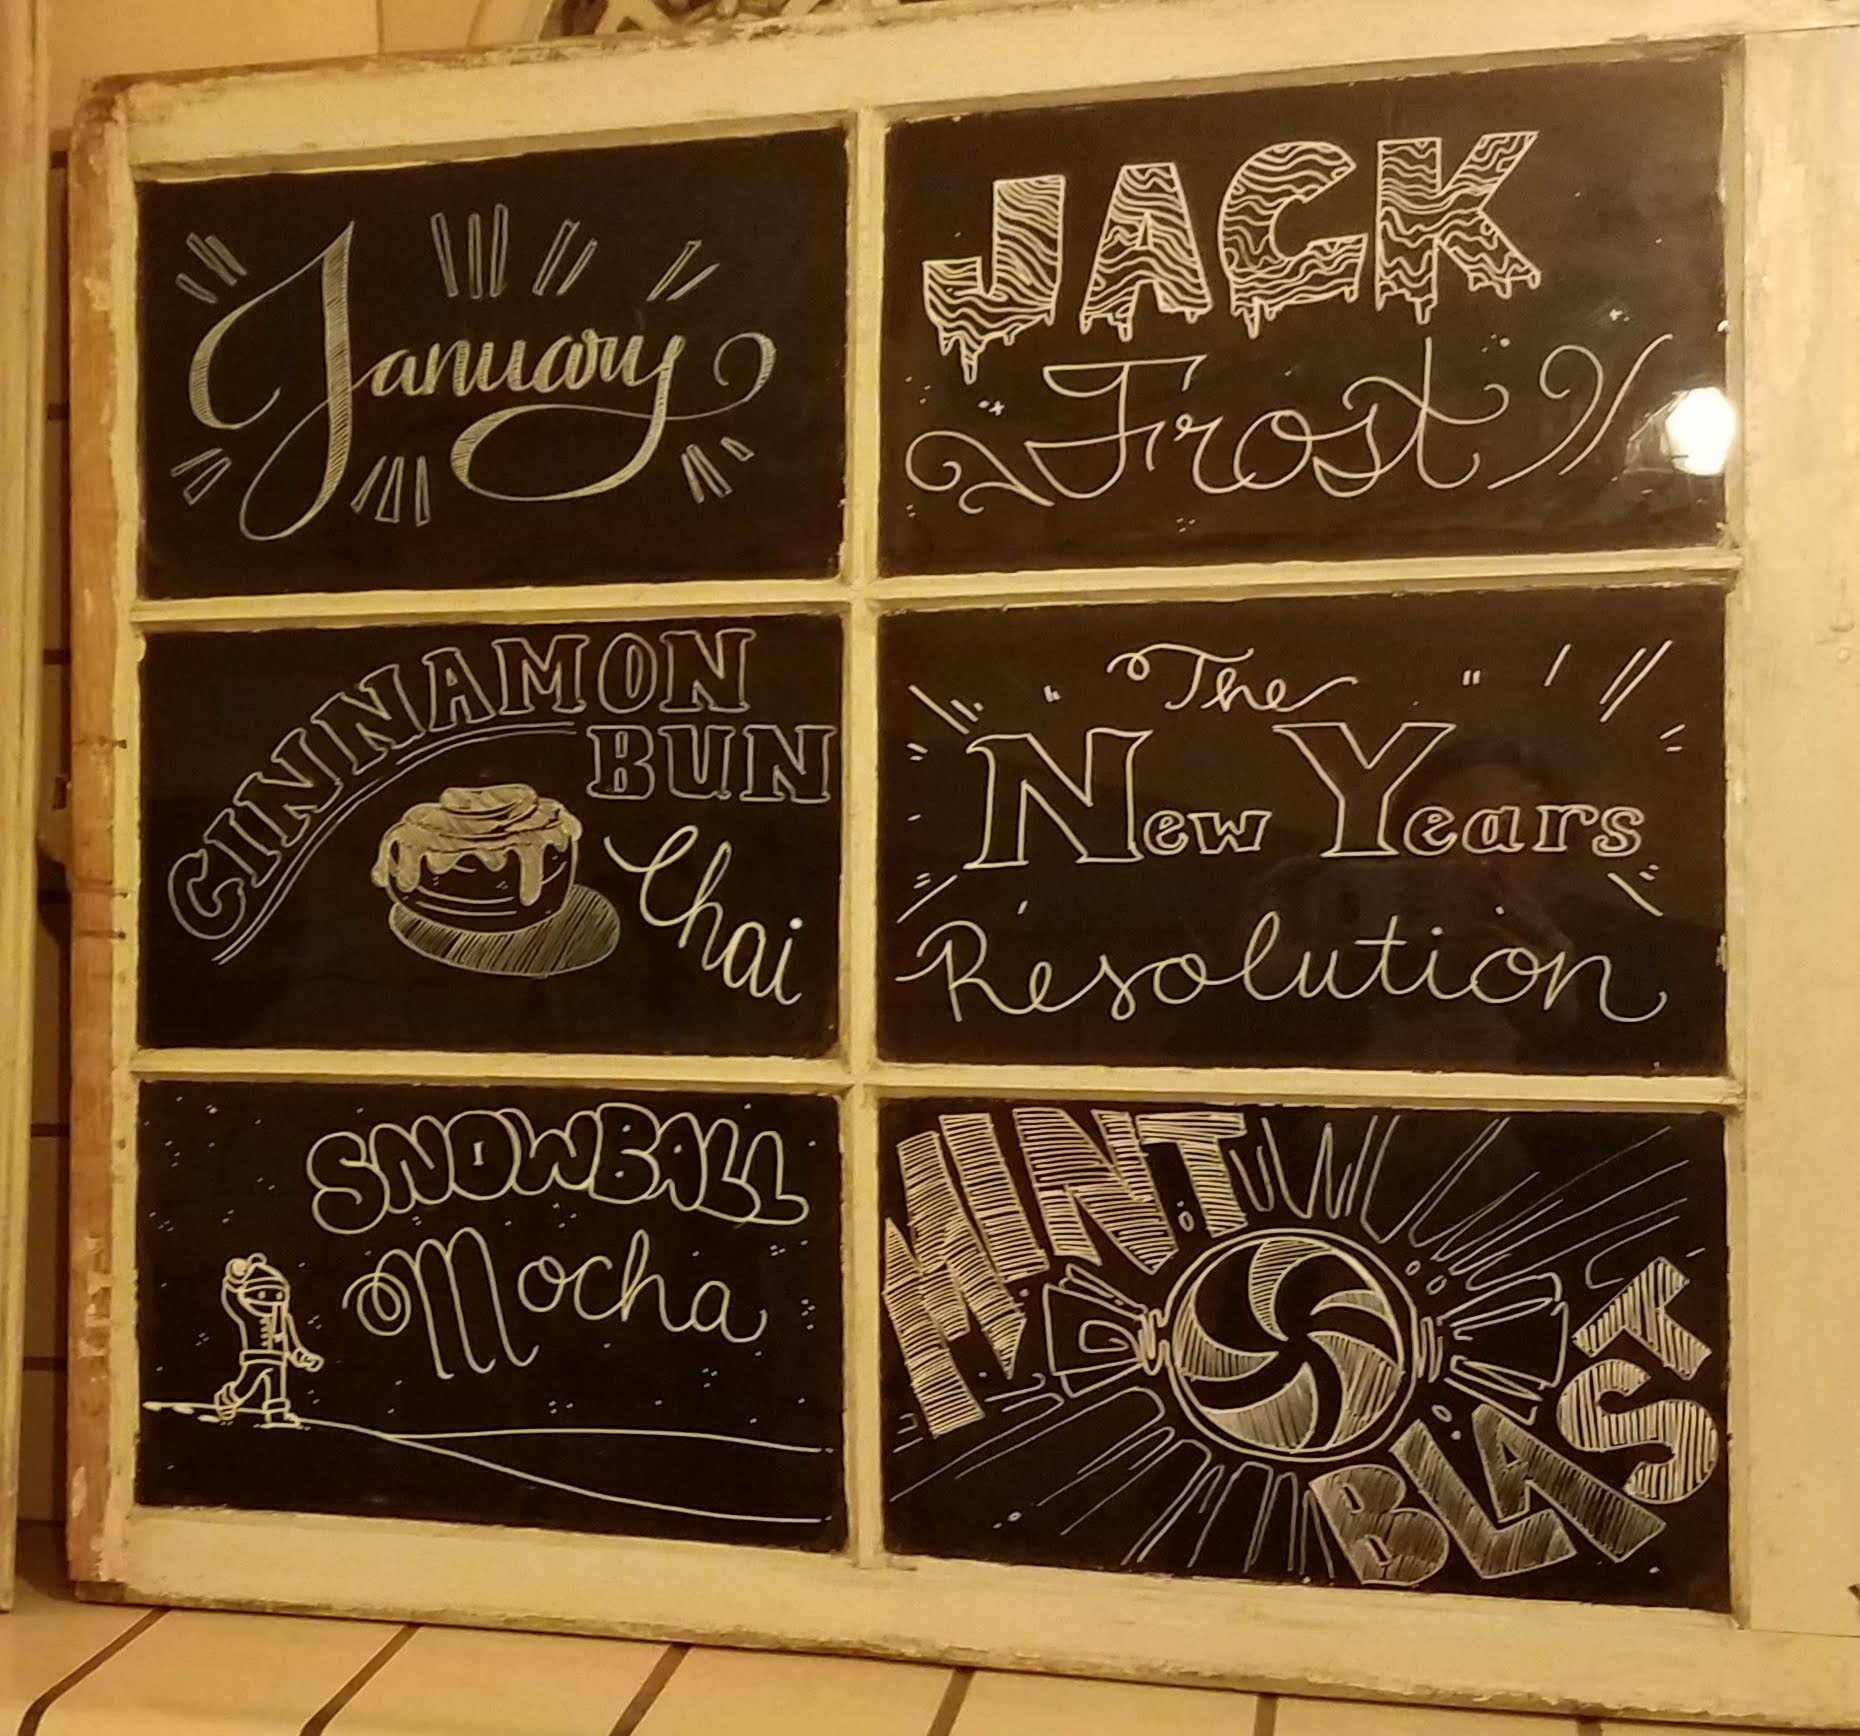 January
JACK
Frost
CINNAMON
BUN
Chai
The
New Years
Resolution
SNOWBALL
Mocha
MINT
BLAST